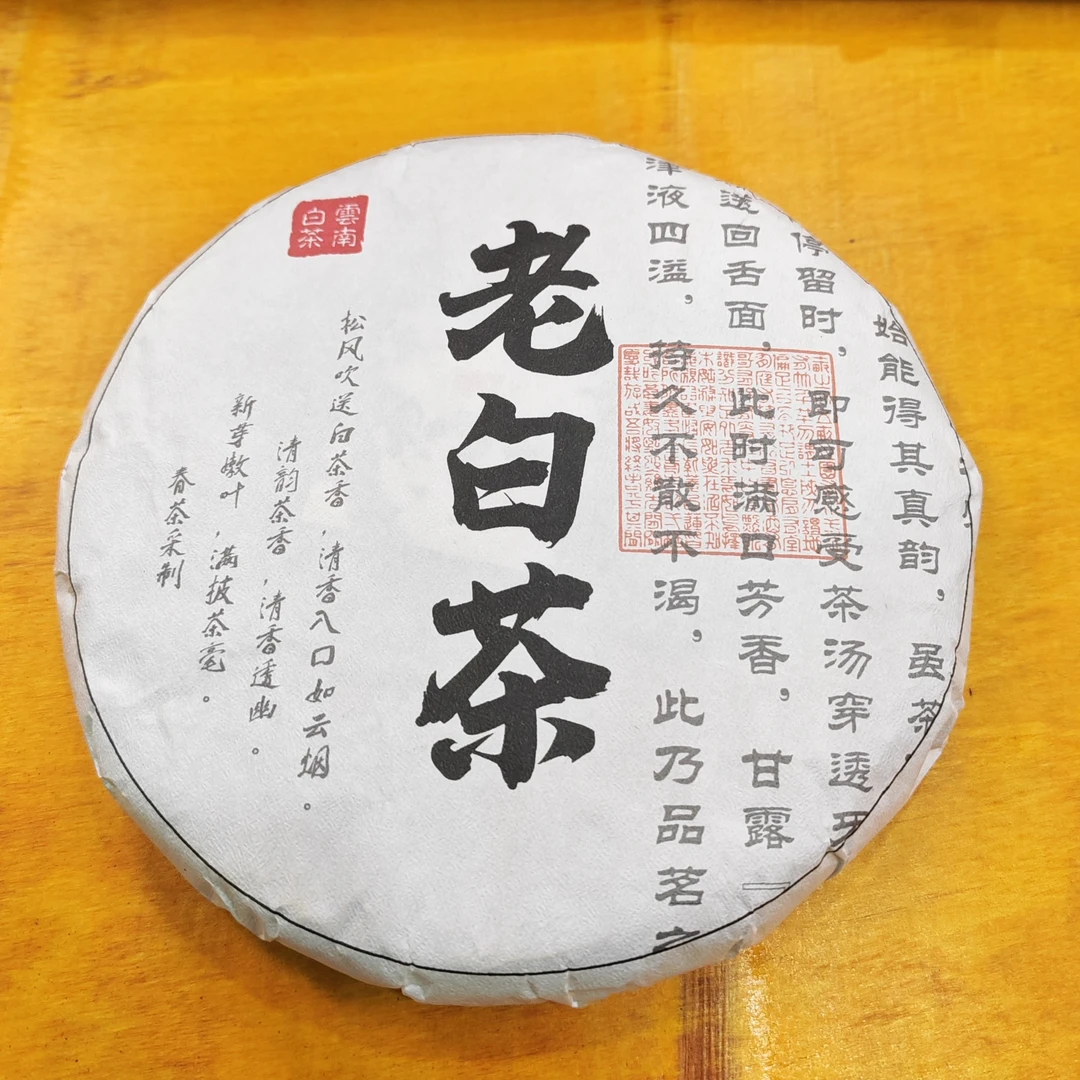 始能得其真韵，虽茶
停留时，即可感受茶汤穿透牙
送回舌面，此时满口芳香，甘露『
津液四溢，持久不散不渴，此乃品茗之
老白茶
雲南
白茶
松风吹送白茶香，清香入口如云烟。
清韵茶香，清香透幽。
新芽嫩叶，满披茶毫。
春茶采制